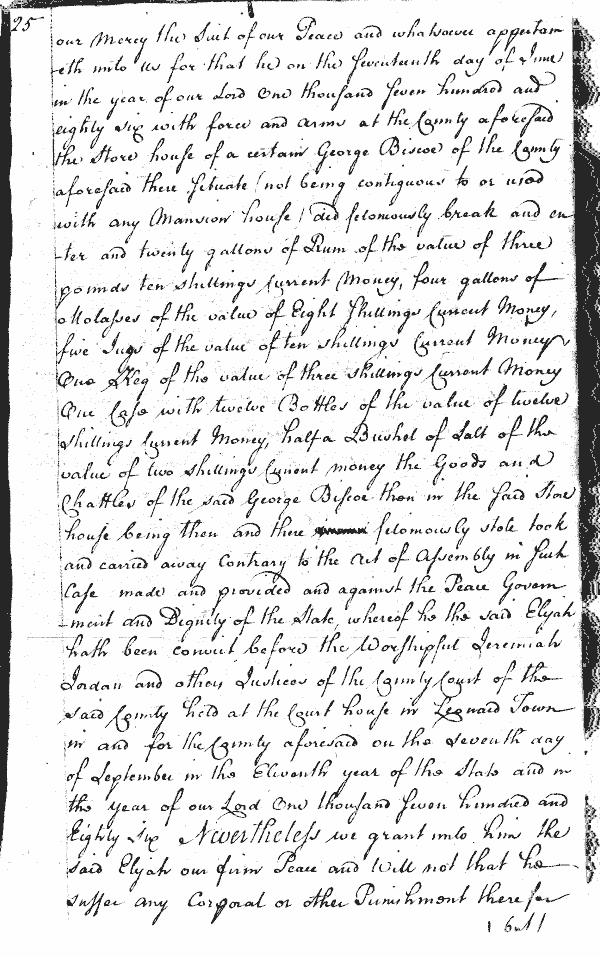 25
our Mercy the Suit of our Peace and whatsoever appertain
-eth unto us for that he on the Seventeenth day of June
in the year of our Lord One thousand Seven hundred and
eighty six with force and arms at the County aforesaid
the Store house of a certain George Biscoe of the County
aforesaid there Situate (not being contiguous to or used
with any Mansion house) did felomously break and en
-ter and twenty gallons of Rum of the value of three
pounds ten shillings Current Money, four gallons of
Molasses of the value of Eight Shillings Current Money,
five Jugs of the value of ten shillings Current Money
One Keg of the value of three shillings Current Money
One Case with twelve Bottles of the value of twelve
Shillings Current Money, half a Bushel of Salt of the
value of two shillings Current money the Goods and
Chattles of the said George Biscoe then in the said Store
house being then and there felomously stole took
and carried away Contrary to the Act of Assembly in Such
Case made and provided and against the Peace Govern
-ment and Dignity of the State, whereof he the said Elijah
hath been convict before the Worshipful Jeremiah
Jordan and others Justices of the County Court of the
said County held at the Court house in Leonard Town
in and for the County aforesaid on the Seventh day
of September in the Eleventh year of the State and in
the year of our Lord One thousand Seven hundred and
Eighty Six Nevertheless we grant unto him the
said Elijah our firm Peace and Will not that he
suffer any Corporal or other Punishment therefor
but